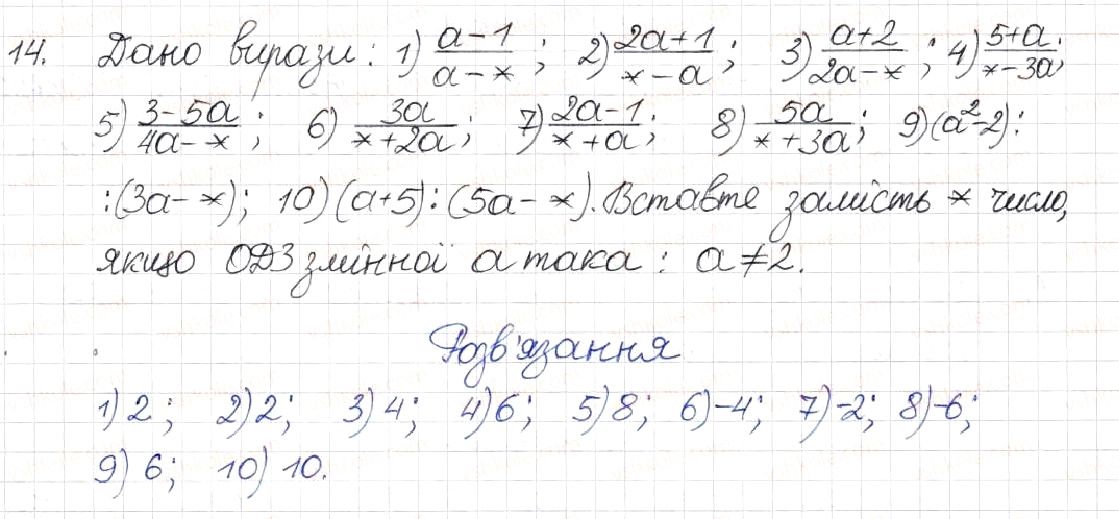 14. Дано вирази: 1) (a-1)/(a-*); 2) (2a+1)/(*-a); 3) (a+2)/(2a-*); 4) (5+a)/(*-3a);
5) (3-5a)/(4a-*); 6) 3a/(*+2a); 7) (2a-1)/(*+a); 8) 5a/(*+3a); 9) (a²-2):
:(3a-*); 10) (a+5):(5a-*). Вставте замість * число,
якщо ОДЗ змінної a така: a≠2.
Розв'язання
1) 2; 2) 2; 3) 4; 4) 6; 5) 8; 6) -4; 7) -2; 8) -6;
9) 6; 10) 10.